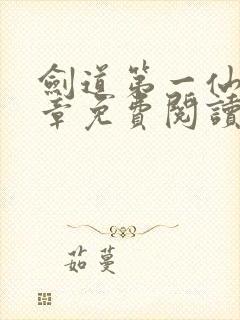 劍道第一仙
章免費閱讀
茹蔓